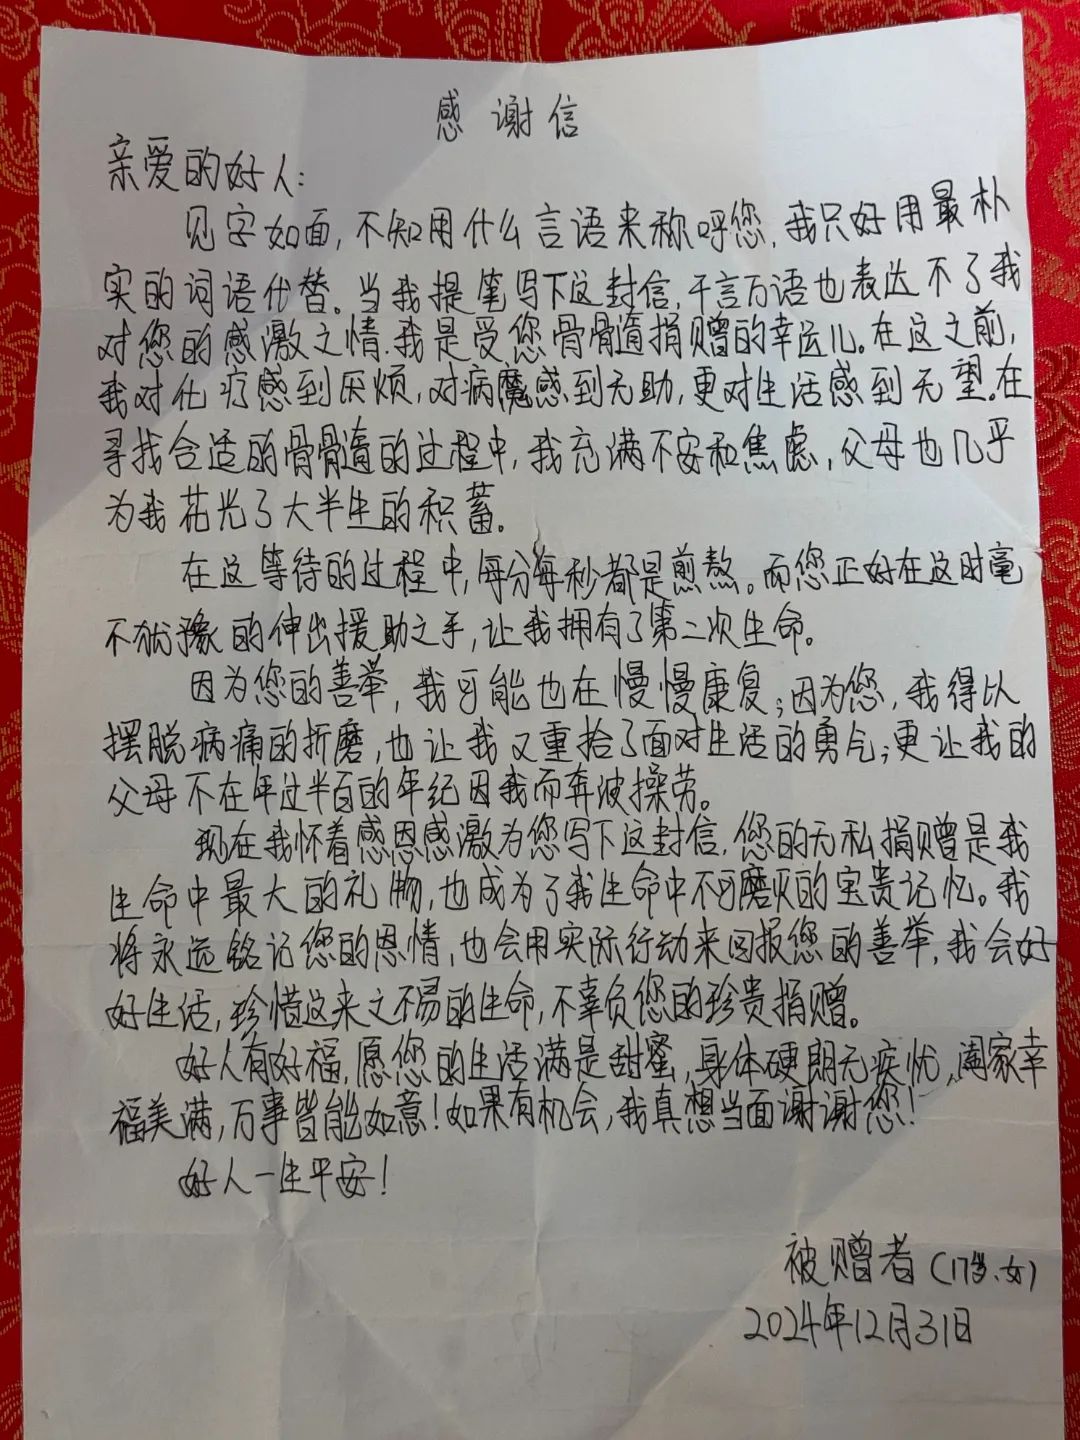 感谢信
亲爱的好人:
见字如面,不知用什么言语来称呼您,我只好用最朴
实的词语代替。当我提笔写下这封信,千言万语也表达不了我
对您的感激之情.我是受您骨髓捐赠的幸运儿。在这之前,
我对化疗感到厌烦,对病魔感到无助,更对生活感到无望.在
寻找合适的骨髓的过程中,我充满不安和焦虑,父母也几乎
为我花光了大半生的积蓄。
在这等待的过程中,每分每秒都是煎熬。而您正好在这时毫
不犹豫的伸出援助之手,让我拥有了第二次生命。
因为您的善举,我可能也在慢慢康复;因为您,我得以
摆脱病痛的折磨,也让我又重拾了面对生活的勇气;更让我的
父母不在年过半百的年纪因我而奔波操劳。
现在我怀着感恩感激为您写下这封信.您的无私捐赠是我
生命中最大的礼物,也成为了我生命中不可磨灭的宝贵记忆。我
将永远铭记您的恩情,也会用实际行动来回报您的善举,我会好
好生活,珍惜这来之不易的生命,不辜负您的珍贵捐赠。
好人有好福,愿您的生活满是甜蜜,身体硬朗无疾忧,阖家幸
福美满,万事皆能如意!如果有机会,我真想当面谢谢您!
好人一生平安!
被赠者(17岁、女)
2024年12月31日